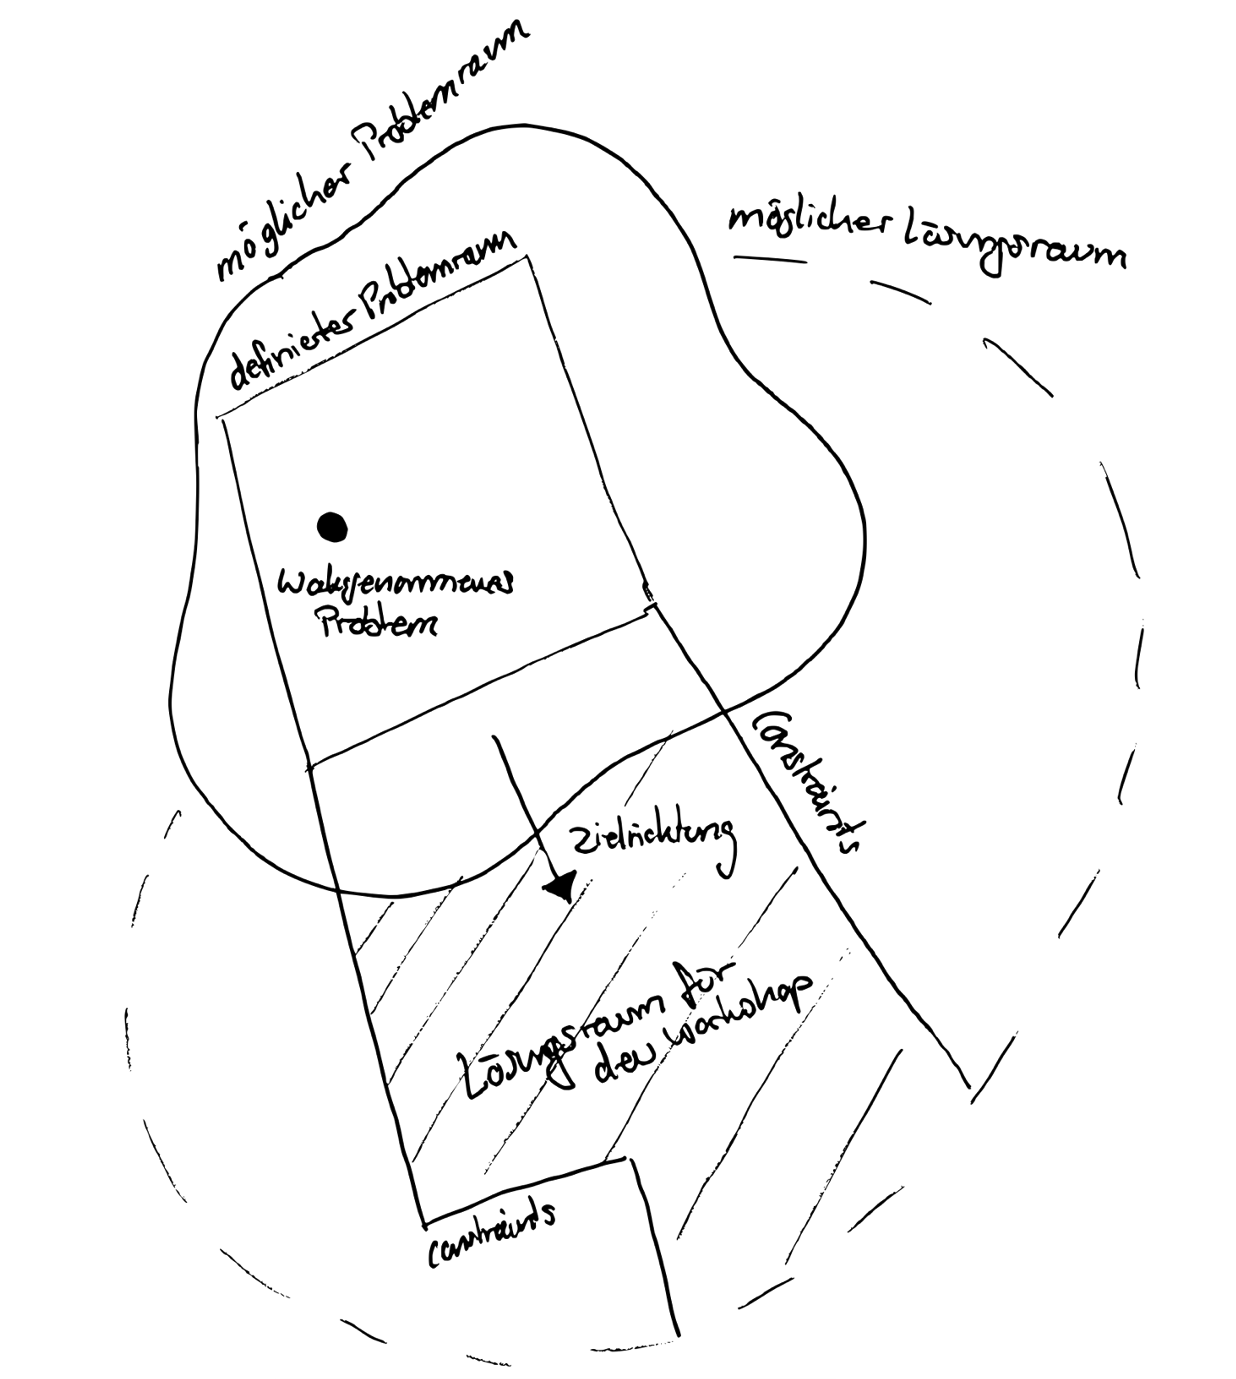 möglicher Problemraum
möglicher Lösungsraum
definierter Problemraum
Wahrgenommenes
Problem
Constraints
Zielrichtung
Lösungsraum für
den Workshop
Constraints